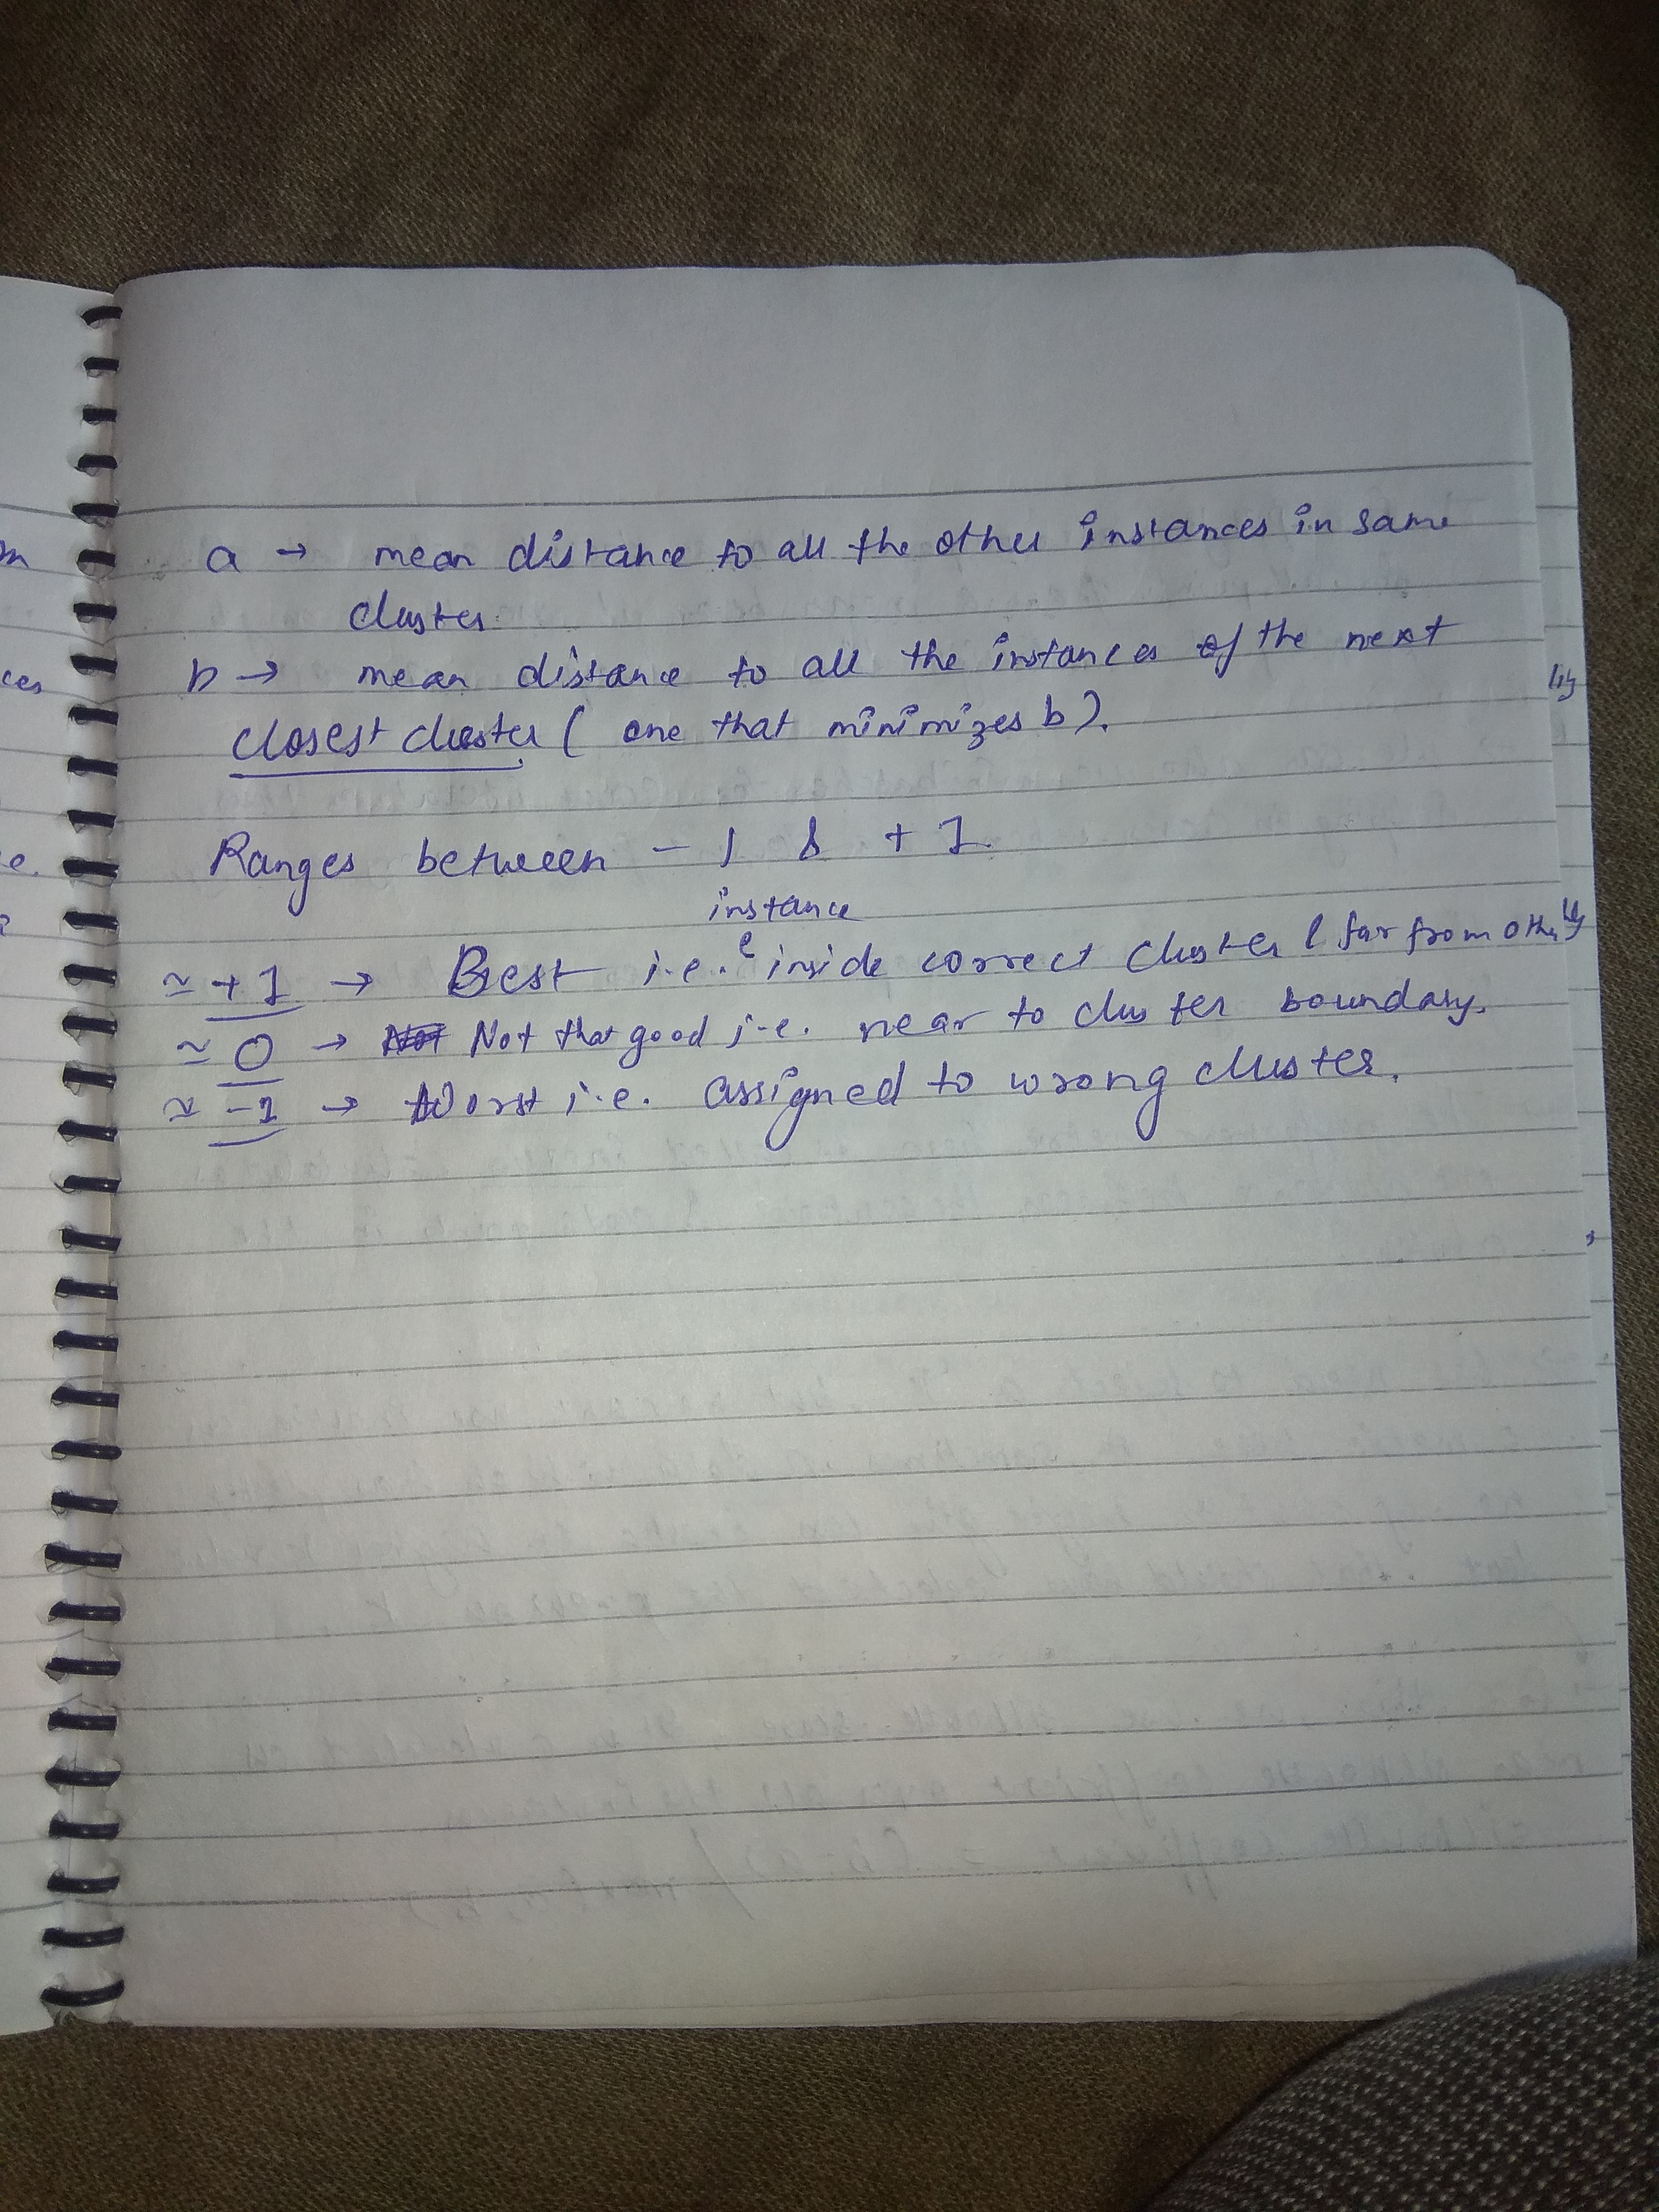 a → mean distance to all the other instances in same
cluster.
b → mean distance to all the instances of the next
closest cluster ( one that minimizes b).
Ranges between - 1 & + 1.
instance
≃ +1 → Best i.e. inside correct cluster & far from other
≃ 0 → Not that good i.e. near to cluster boundary.
≃ -1 → Worst i.e. assigned to wrong cluster.